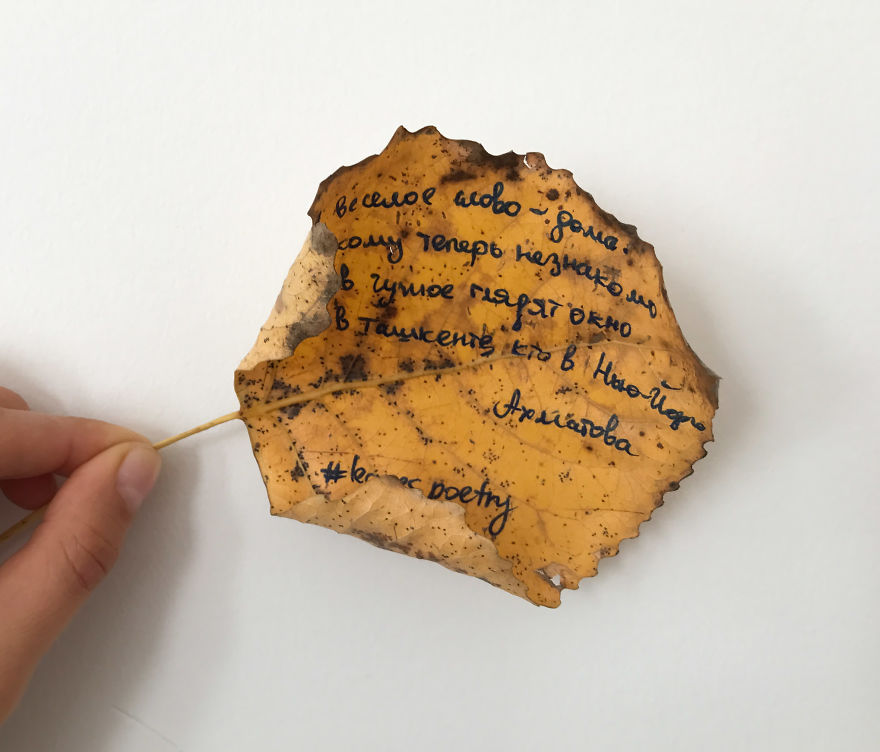 веселое слово – дома.
кому теперь незнакомо
в чужое глядят окно
в Ташкенте, кто в
Ахматова
poetry